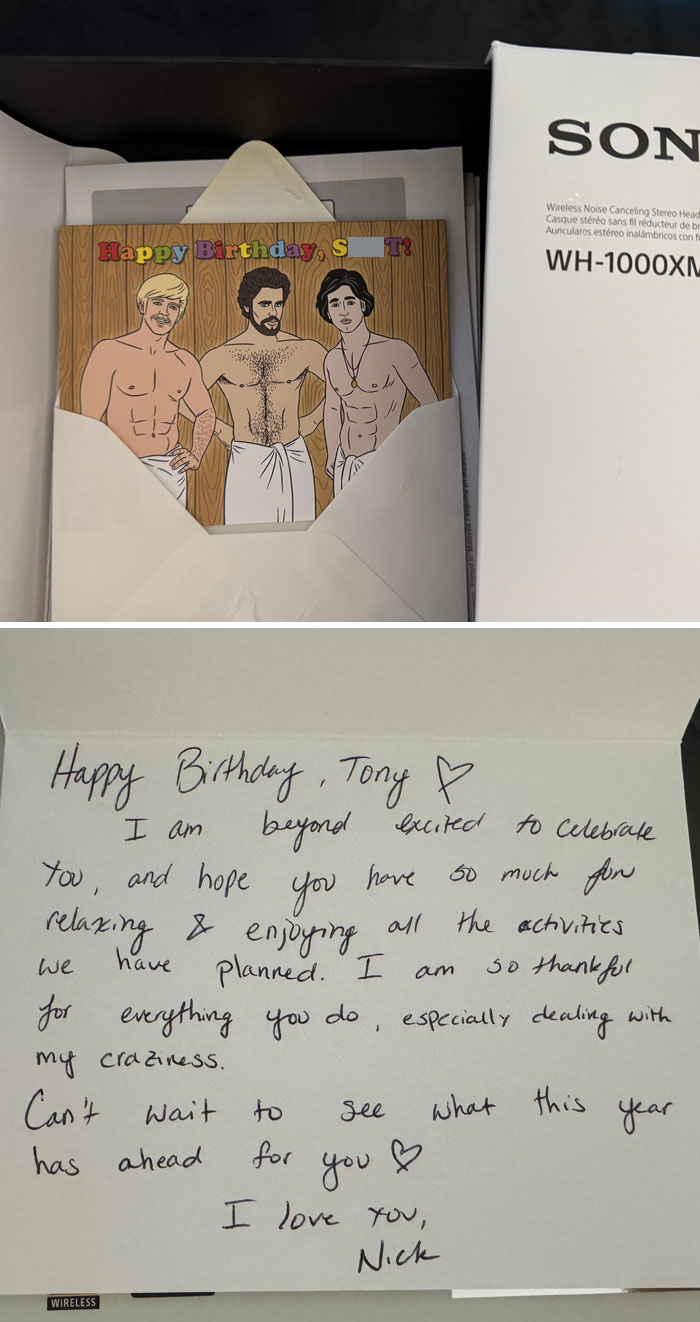 Happy Birthday, S T!
SON
Wireless Noise Canceling Stereo Head
Casque stéréo sans fil réducteur de br
Auriculares estéreo inalámbricos con
WH-1000XM
Happy Birthday, Tony ♡
I am beyond excited to celebrate
You, and hope you have so much fun
relaxing & enjoying all the activities
we have planned. I am so thankful
for everything you do, especially dealing with
my craziness.
Can't wait to see what this year
has ahead for you ♡
I love you,
Nick
WIRELESS